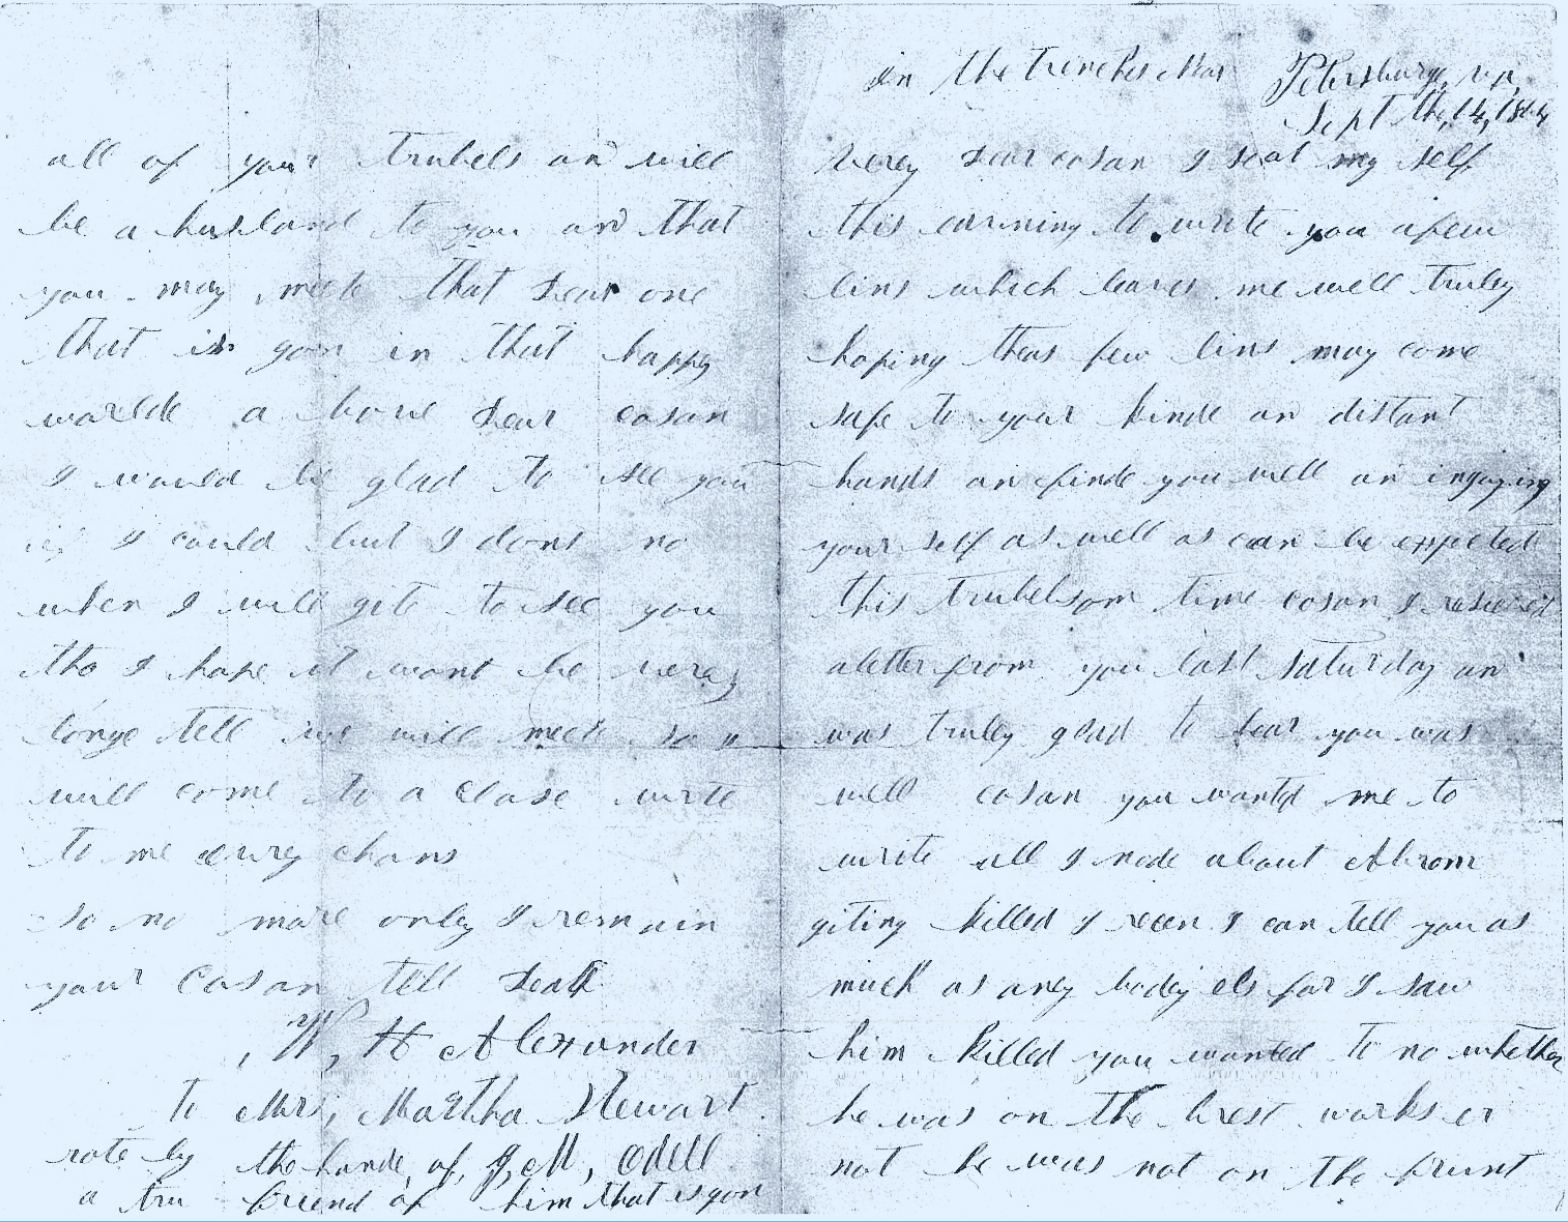 in the trenches near Petersburge, va,
Sept the, 14, 1864
verey dear cosan I seat my self
this morning to write you afew
lins which leaves me well truley
hoping theas few lins may come
safe to your kinde an distant
hands an finde you well an ingoying
your self as well as can be expected
this trubelsom time cosan I
aletter from you last saturday an
was truley glad to hear you was
well cosan you wantd me to
write all I node about Abrom
giting killed I recen I can tell you as
much as aney bodey els for I saw
him killed you wanted to no whether
he was on the brest works er
not he was not on the frunt
all of your trubels an will
be a husband to you and that
you may meete that dear one
that is gon in that happy
warlde a bove dear cosan
I would be glad to see you
if I could but I dont no
when I will gite to see you
tho I hope it wont be verey
longe tell we will meete so I
will come to a close write
to me every chans
so no more only I remain
your Cosan tell death
W, H Alexander
to Mrs, Martha Stewart
rote by the hande of, J, M, Odell
a tru friend of him that is gon